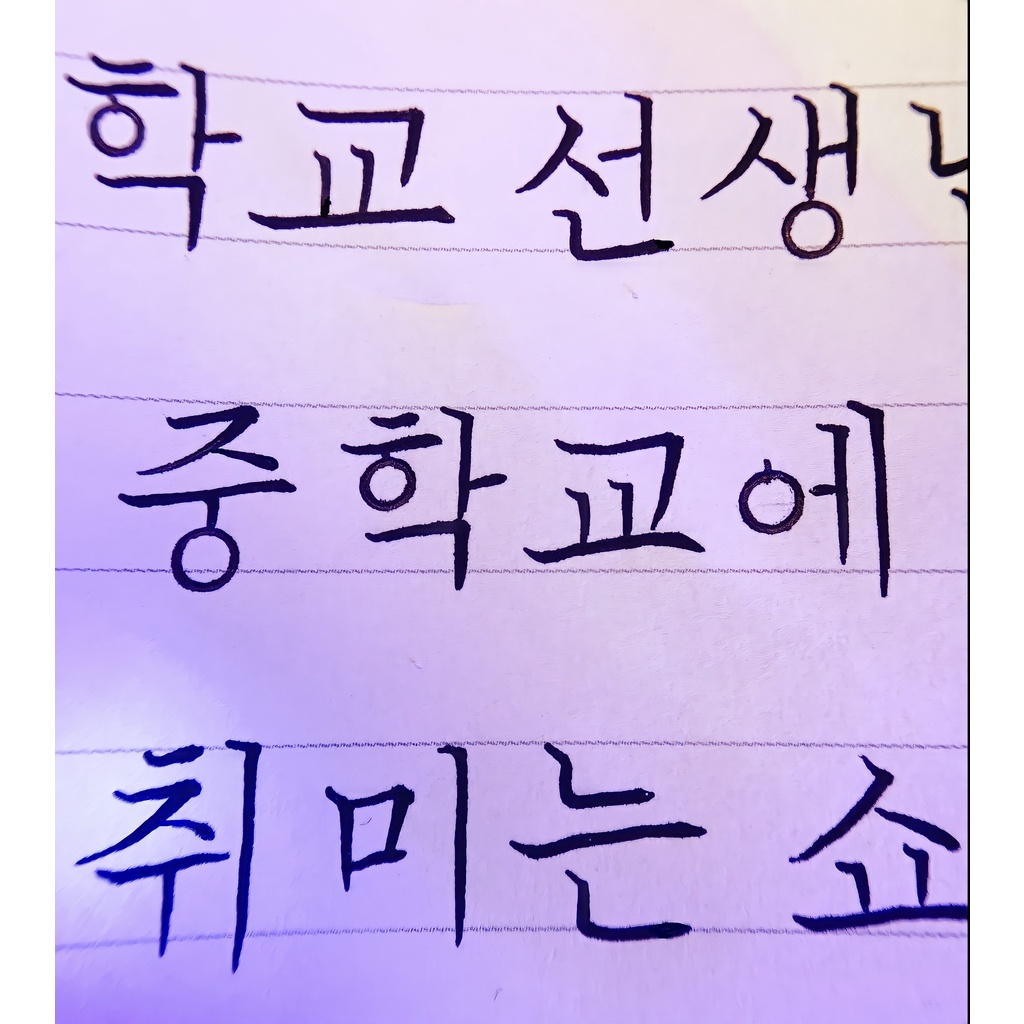 학교 선생
중학교에
취미는 쇼